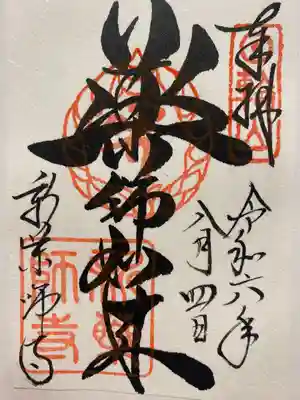 奉拝
令和六年
八月四日
薬師如来
新薬師寺